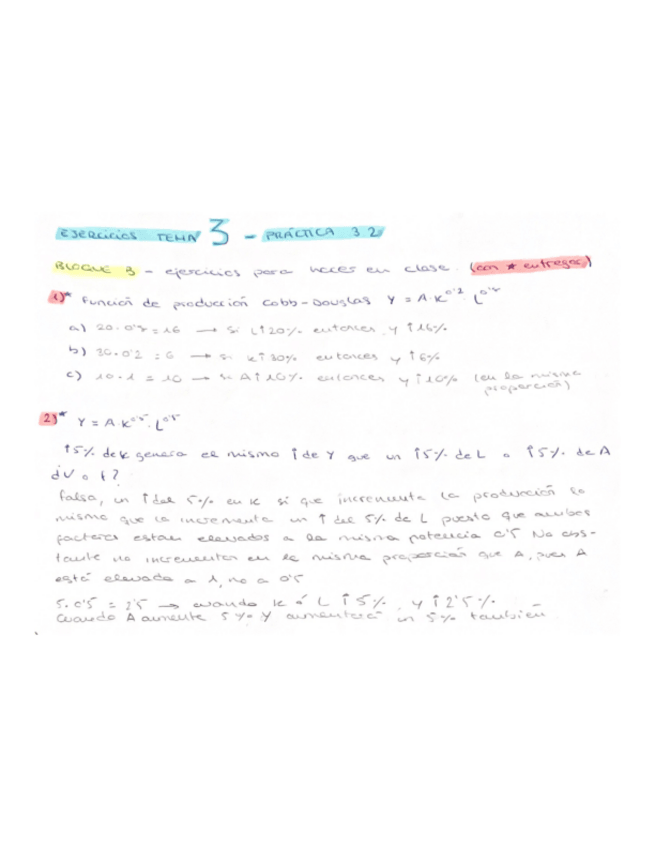 EJERCICIOS TEMA 3 - PRÁCTICA 3.2
BLOQUE 3 - ejercicios para hacer en clase. (con * entregar)
1)* Función de producción Cobb-Douglas Y = A·K^0'2·L^0'8
a) 20·0'8 = 16 → si L↑20% entonces y ↑16%
b) 30·0'2 = 6 → si K↑30% entonces y ↑6%
c) 10·1 = 10 → si A↑10% entonces y↑10% (en la misma
proporción)
2)* Y = A K^0'5·L^0'5
↑5% de K genera el mismo ↑ de Y que un ↑5% de L o ↑5% de A
¿V o F?
Falsa, un ↑ del 5% en K si que incrementa la producción lo
mismo que la incrementa un ↑ del 5% de L puesto que ambos
factores estan elevados a la misma potencia 0'5 No obs-
tante no incrementan en la misma proporción que A, pues A
está elevada a 1, no a 0'5
5·0'5 = 2'5 → cuando K ó L ↑5%, y ↑2'5%.
Cuando A aumente 5% Y aumentará un 5% también